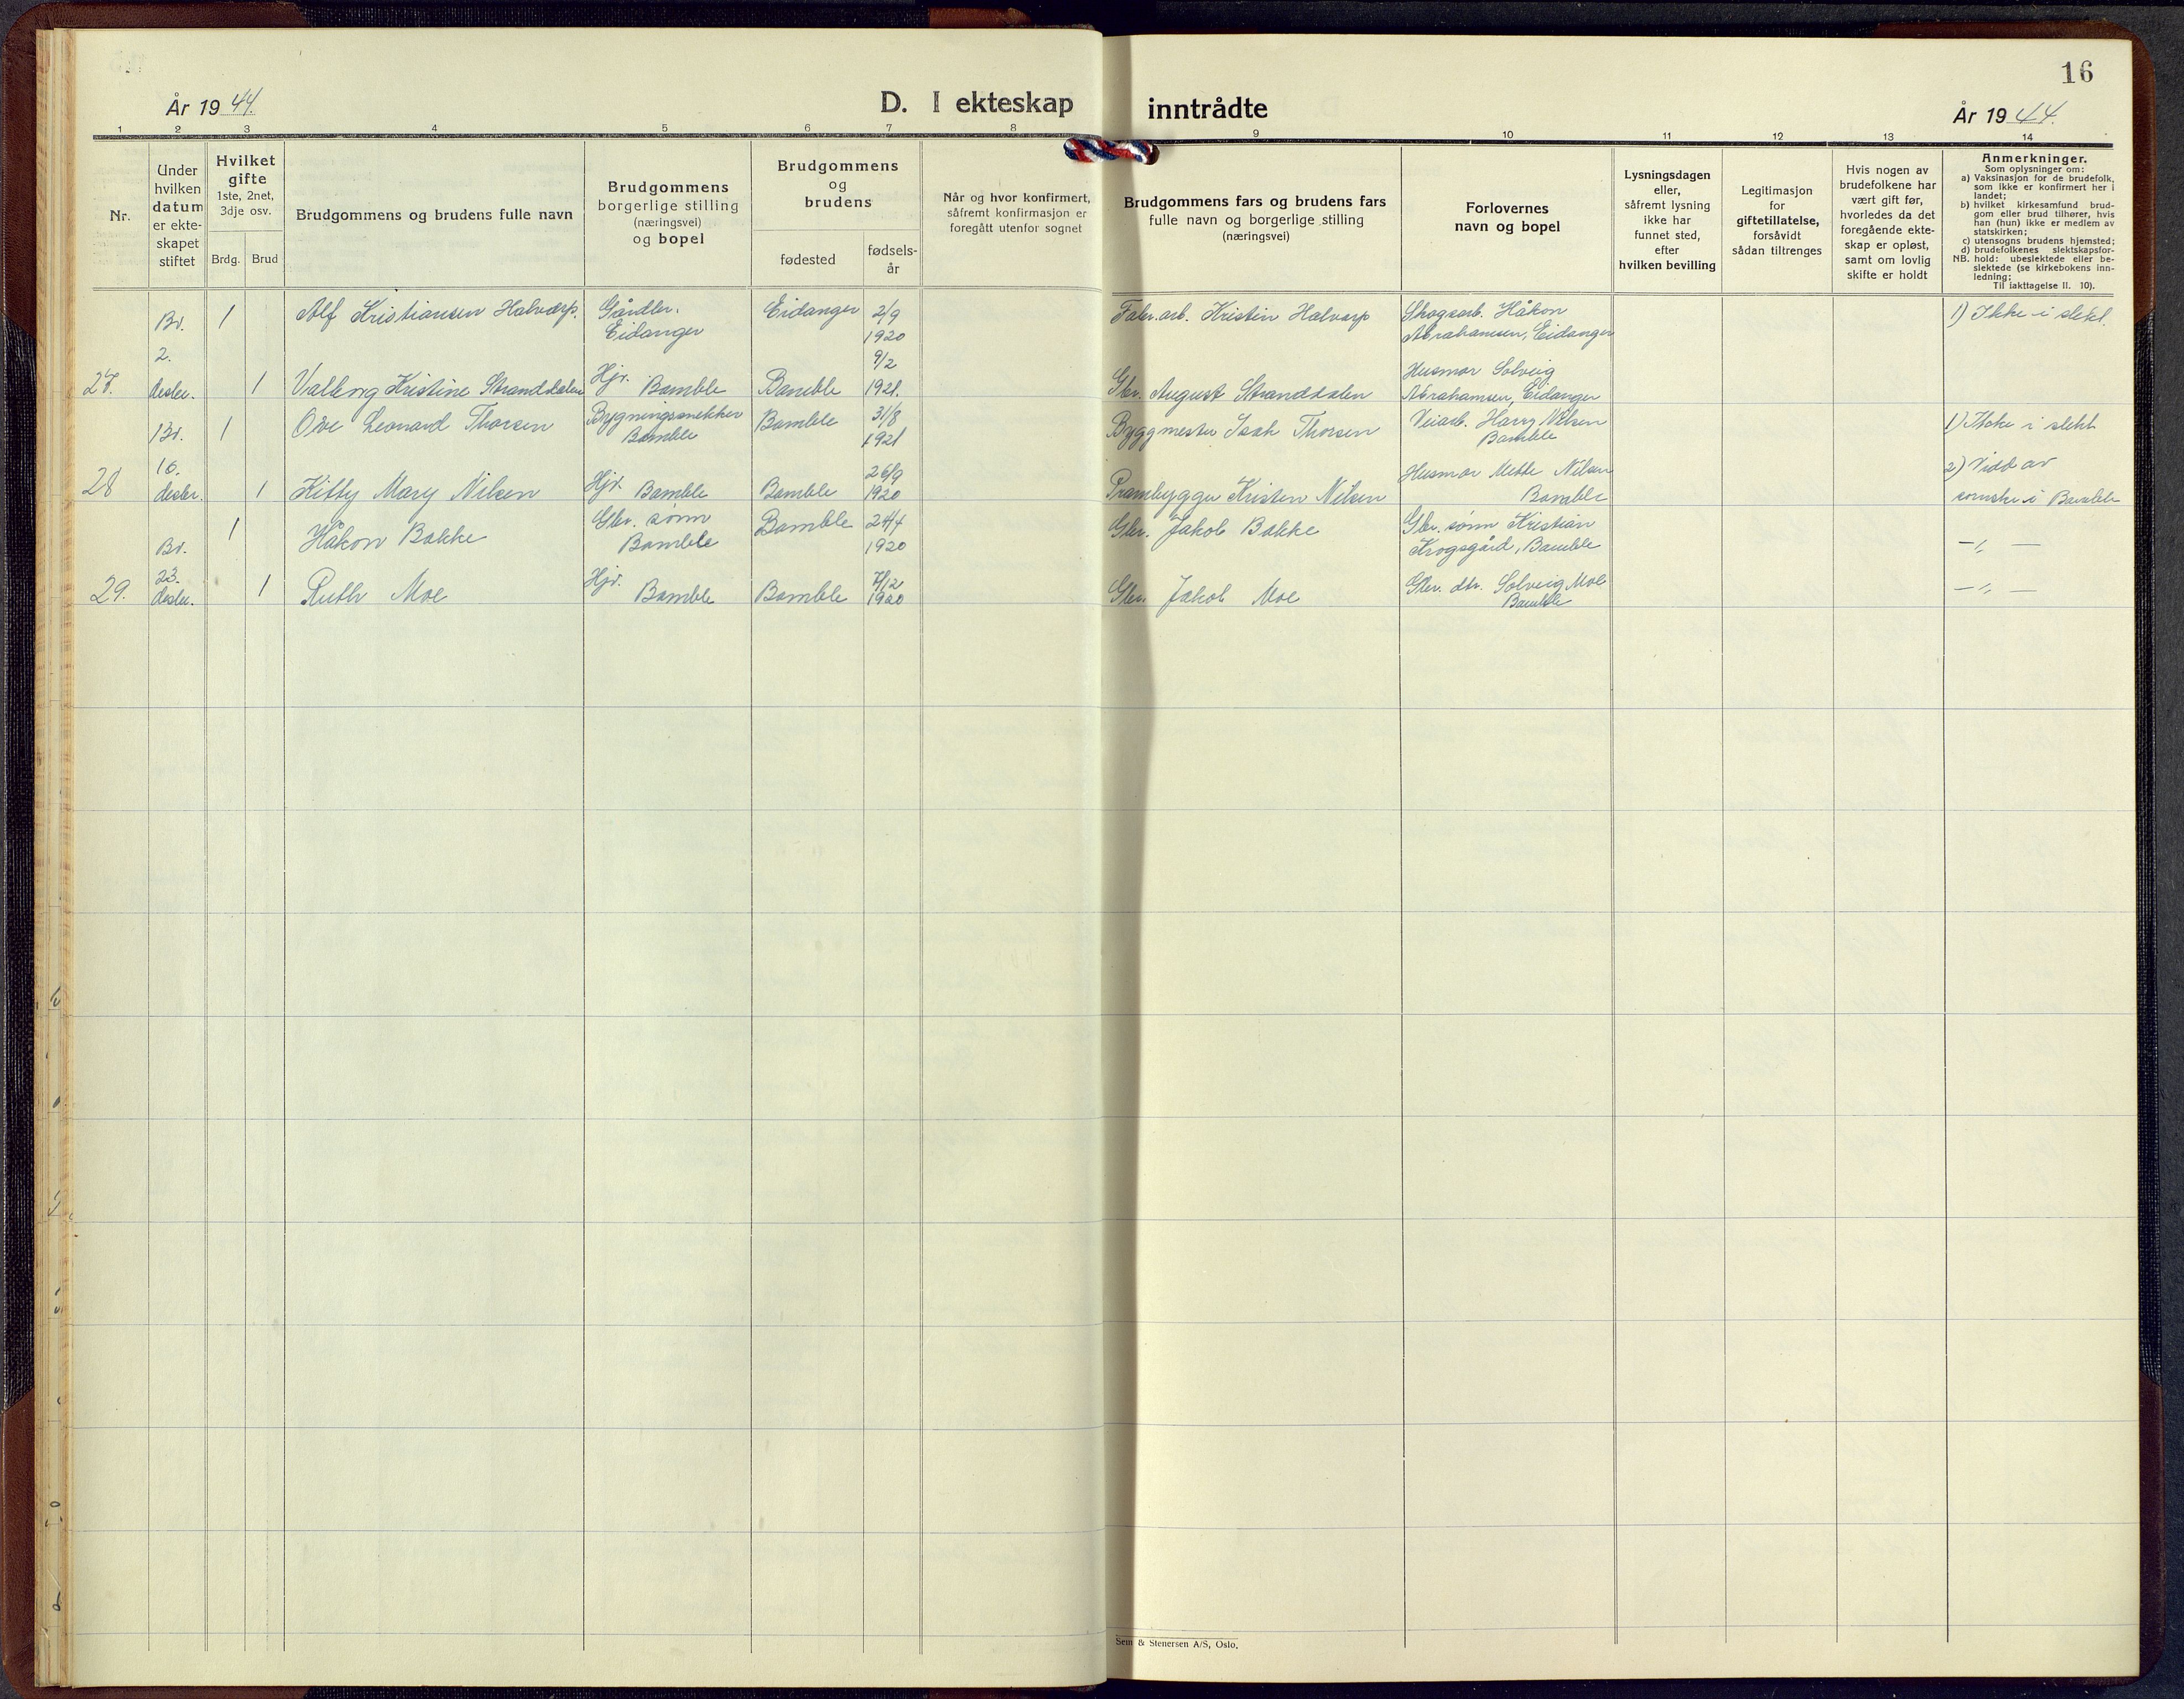 16
År 1944.
D. I ekteskap inntrådte
År 1944.
1 2 3 4 5 6 7 8 9 10 11 12 13 14
Nr.
Under
hvilken
datum
er ekte-
skapet
stiftet
Hvilket
gifte
1ste, 2net,
3dje osv.
Brdg. Brud
Brudgommens og brudens fulle navn
Brudgommens
borgerlige stilling
(næringsvei)
og bopel
Brudgommens
og
brudens
fødested
fødsels-
år
Når og hvor konfirmert,
såfremt konfirmasjon er
foregått utenfor sognet
Brudgommens fars og brudens fars
fulle navn og borgerlige stilling
(næringsvei)
Forlovernes
navn og bopel
Lysningsdagen
eller,
såfremt lysning
ikke har
funnet sted,
efter
hvilken bevilling
Legitimasjon
for
giftetillatelse,
forsåvidt
sådan tiltrenges
Hvis nogen av
brudefolkene har
vært gift før,
hvorledes da det
foregående ekte-
skap er opløst,
samt om lovlig
skifte er holdt
Anmerkninger.
Som oplysninger om:
a) Vaksinasjon for de brudefolk,
som ikke er konfirmert her i
landet;
b) hvilket kirkesamfund brud-
gom eller brud tilhører, hvis
han (hun) ikke er medlem av
statskirken;
c) utensogns brudens hjemsted;
d) brudefolkenes slektskapsfor-
NB. hold: ubeslektede eller be-
slektede (se kirkebokens inn-
ledning;
Til iakttagelse II. 10).
27.
Br.
2.
desbr.
1
Alf Kristiansen Halvarp.
Gårdbr.
Eidanger
Eidanger
2/9
1920
Fabr.arb. Kristin Halvarp
Skogsarb. Håkon
Abrahamsen, Eidanger
1) Ikke i slekt.
1
Valborg Kristine Stranddalen
Hjv. Bamble
Bamble
9/2
1921.
Gbr. August Stranddalen
Husmor Solveig
Abrahamsen, Eidanger
28
Br.
16.
desbr.
1
Ove Leonard Thorsen
Bygningssnekker
Bamble
Bamble
31/8
1921
Byggmester Isak Thorsen
Veiarb. Harry Nilsen
Bamble
1) Ikke i slekt
1
Kitty Mary Nilsen
Hjv. Bamble
Bamble
26/9
1920
Prambygger Kristen Nilsen
Husmor Mette Nilsen
Bamble
2) Vidd av
sorenskr. i Bamble
29.
Br.
23.
desbr.
1
Håkon Bakke
Gbr. sønn
Bamble
Bamble
24/4
1920
Gbr. Jakob Bakke
Gbr. sønn Kristian
Krogsgård, Bamble
— „ —
1
Ruth Moe
Hjv. Bamble
Bamble
7/12
1920
Gbr. Jakob Moe
Gbr. dtr. Solveig Moe
Bamble
— „ —
Sem & Stenersen A/S, Oslo.